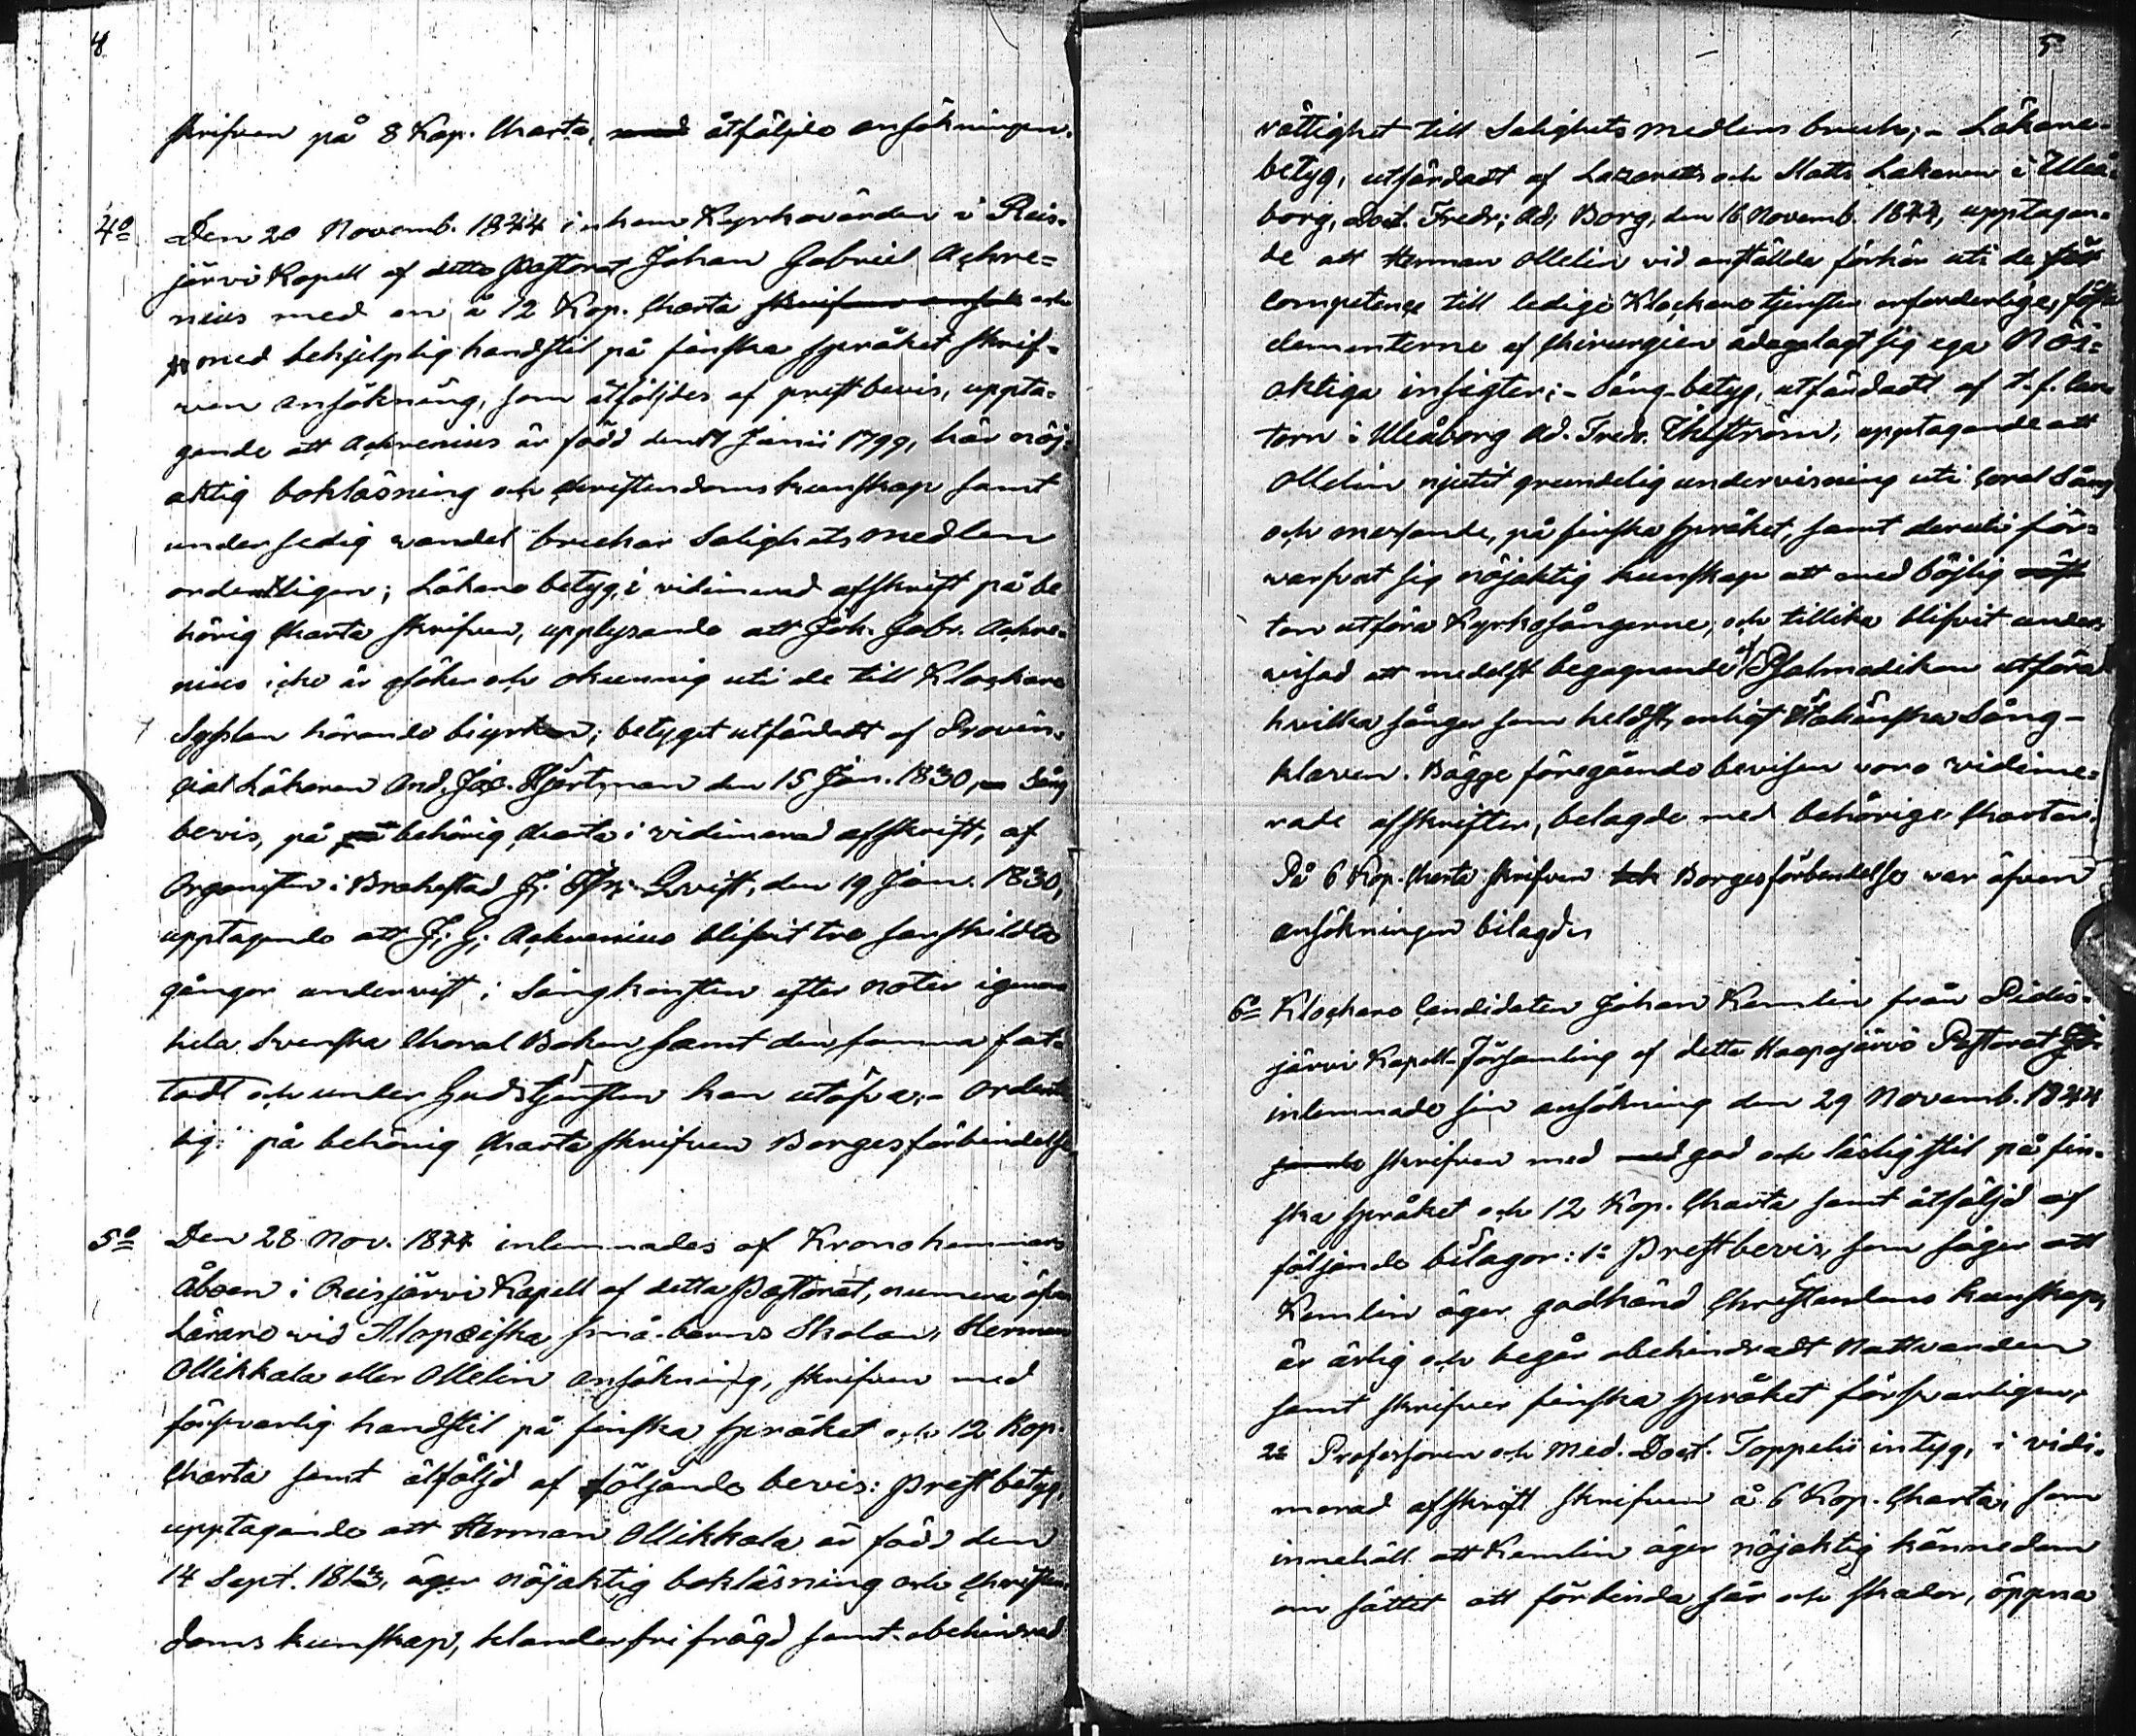 4
skrifven på 8 Kop. Charta, åtföljde ansökningen.
4º Den 20 Novemb. 1844 inkom Kyrkovärden i Reis-
järvi Kapell af detta Pastorat Johan Gabriel Achre=
nius med en å 12 Kop. Charta skrifven och
med behjelplig handstil på finska språket skrif-
ven ansökning, som åtföljdes af prestbevis, uppta-
gande att Achrenius är född den Junii 1799, har nöj-
aktig bokläsning och christendoms kunskap samt
under sedig vandel brukar Salighets medlen
ordentligen; Läkare betyg, i vidimerad afskrift på be
hörig Charta skrifven, upplysande att Joh. Gabr. Achre-
nius icke är och okunnig uti de till Klockare
Sysslan hörande biyrken; betyget utfärdadt af Provin-
cial Läkaren And. Joh. Hjertman den 15 Jan. 1830, Sång
bevis, på behörig Charta i vidimerad afskrift, af
Organisten i Brahestad J. Qvist, den 19 Jan. 1830,
upptagande att J. G. Achrenius blifvit tre särskildta
gånger undervist i Sångkonsten efter noter igenom
hela Svenska Choral Boken samt den samma fat-
tadt och under Gudstjensten kan utöfva; - ordent
lig på behörig Charta skrifven Borgesförbindelse
5º Den 28 Nov. 1844 inlemnades af Kronohemmans
åboen i Reisjärvi Kapell af detta Pastorat, numera äfven
Lärare vid Alopæiska små-barns Skolan, Herman
Ollikkala eller Ollelin ansökning, skrifven med
försvarlig handstil på finska språket och 12 Kop.
Charta samt åtföljd af följande bevis: Prestbetyg,
upptagande att Herman Ollikkala är född den
14 Sept. äger nöjaktig bokläsning och Christen-
doms kunskap, klanderfri frägd samt obehindrad
5
rättighet till Salighets medlens bruk; - Läkare-
betyg, utfärdadt af Lazaretts och Stads Läkaren i Uleå-
borg, Doct. Fredr. Ad. Borg, den 16 Novemb. 1844, upptagan-
de att Herman Ollelin vid anställde förhör uti de för
competence till ledige Klockare tjenster erforderlige, första
elementerne af Chirurgien ådagalagt sig ega Nöj-
aktiga insigter; - Sång-betyg, utfärdadt af t. f. Can
torn i Uleåborg Ad. Fredr. Theström, upptagande att
Ollelin njutit grundelig undervisning uti Coral Sång
och messande, på finska språket, samt deruti för-
värfvat sig nöjaktig kunskap att med böjlig
ton utföra Kyrkosångerne, och tillika blifvit under-
visad att medelst begagnande af Psalmodikon utföra
hvilka sånger som heldst, enligt Sång-
klaven. Bägge föregående bevisen voro vidime-
rade afskrifter, belagde med behörige Chartor.
På 6 Kop. Charta skrifven Borgesförbindelse var äfven
ansökningen bilagd.
6º Klockare Candidaten Johan Kemlin från Pidis-
järvi Kapell-Församling af detta Haapajärvi Pastorat
inlemnade sin ansökning den 29 Novemb. 1844
skrifven med god och läslig stil på fin-
ska språket och 12 Kop. Charta samt åtföljd af
följande bilagor: 1º Prestbevis, som säger att
Kemlin äger godkänd Christendoms kunskap,
är ärlig och begår obehindradt Nattvarden
samt skrifver finska språket försvarligen,
2º Professoren och Med. Doct. Toppelii intyg, i vidi-
merad afskrift skrifven å 6 Kop. Charta, som
innehåll att Kemlin äger nöjaktig kännedom
om sättet att förbinda sår och skador, öppna